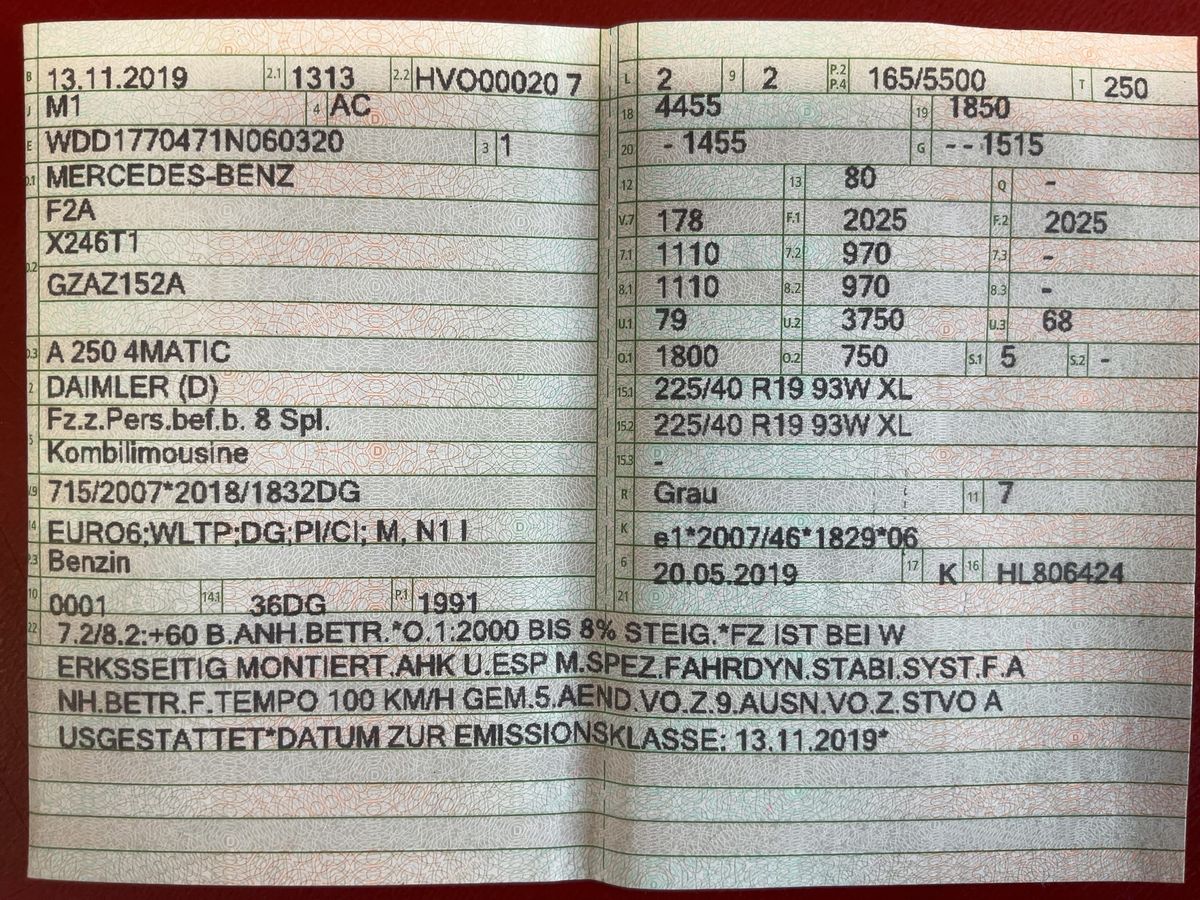 B 13.11.2019 2.1 1313 2.2 HVO00020 7
J M1 4 AC
E WDD1770471N060320 3 1
D.1 MERCEDES-BENZ
F2A
X246T1
D.2 GZAZ152A
D.3 A 250 4MATIC
2 DAIMLER (D)
Fz.z.Pers.bef.b. 8 Spl.
5 Kombilimousine
V.9 715/2007*2018/1832DG
14 EURO6;WLTP;DG;PI/CI; M, N1 I
P.3 Benzin
10 0001 14.1 36DG P.1 1991
L 2 9 2 P.2 P.4 165/5500 T 250
18 4455 19 1850
20 - 1455 G - - 1515
12 13 80 Q -
V.7 178 F.1 2025 F.2 2025
7.1 1110 7.2 970 7.3 -
8.1 1110 8.2 970 8.3 -
U.1 79 U.2 3750 U.3 68
O.1 1800 O.2 750 S.1 5 S.2 -
15.1 225/40 R19 93W XL
15.2 225/40 R19 93W XL
15.3 -
R Grau 11 7
K e1*2007/46*1829*06
6 20.05.2019 17 K 16 HL806424
21
22 7.2/8.2:+60 B.ANH.BETR.*O.1:2000 BIS 8% STEIG.*FZ IST BEI W
ERKSSEITIG MONTIERT.AHK U.ESP M.SPEZ.FAHRDYN.STABI.SYST.F.A
NH.BETR.F.TEMPO 100 KM/H GEM.5.AEND.VO.Z.9.AUSN.VO.Z.STVO A
USGESTATTET*DATUM ZUR EMISSIONSKLASSE: 13.11.2019*